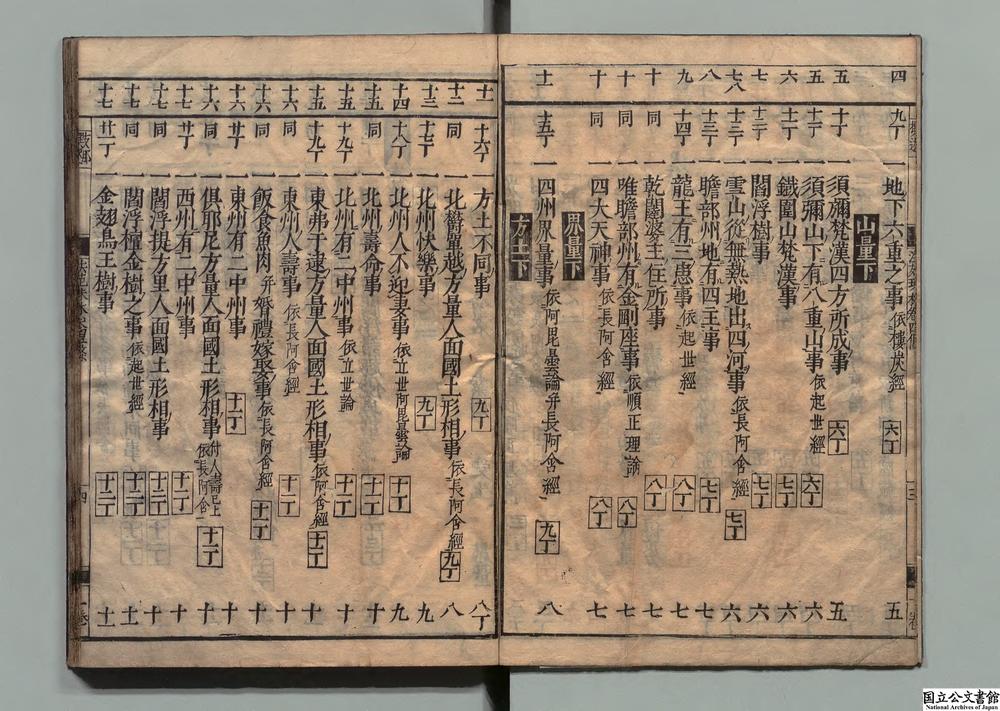 四 九丁 一 地下六重之事 依樓炭經 六丁 五
山量下
五 十丁 一 須彌梵漢四方所成事 六丁 五
五 十一丁 一 須彌山下有八重山事 依起世經 六丁 六
六 十二丁 一 鐵圍山梵漢事 七丁 六
七 十二丁 一 閻浮樹事 七丁 六
七八 一 雪山從無熱地出四河事 依長阿含經 七丁 六
八 十三丁 一 瞻部州地有四主事 七丁 七
九 十四丁 一 龍王有三患事 依起世經 八丁 七
十 同 一 乾闥婆王住所事 八丁 七
十 同 一 唯瞻部州有金剛座事 依順正理論 八丁 七
十 同 一 四大天神事 依長阿含經 八丁 七
界量下
十一 十五丁 一 四州界量事 依阿毘曇論弁長阿含經 九丁 八
方土下
十一 十六丁 一 方土不同事 九丁 八丁
十二 同 一 北欝單越方量人面國土形相事 依長阿含經 九丁 八
十三 十七丁 一 北州快樂事 九丁 九
十四 十八丁 一 北州人不迎妻事 依立世阿毘曇論 十丁 九
十五 同 一 北州壽命事 十一丁 十
十五 十九丁 一 北州有二中州事 依立世論 十一丁 十
十五 十九丁 一 東弗于逮方量人面國土形相事 依長阿含經 十一丁 十
十六 同 一 東州人壽事 依長阿含經 十一丁 十
十六 同 一 飯食魚肉弁婚禮嫁娶事 依長阿含經 十一丁 十
十六 廿丁 一 東州有二中州事 十一丁 十
十六 同 一 俱耶尼方量人面國土形相事 付人壽已上依長阿含 十二丁 十
十七 廿丁 一 西州有二中州事 十一丁 十
十七 同 一 閻浮提方里人面國土形相事 十二丁 十
十七 同 一 閻浮檀金樹之事 依起世經 十二丁 十一
十七 廿一丁 一 金翅鳥王樹事 十二丁 十一
四
国立公文書館
National Archives of Japan